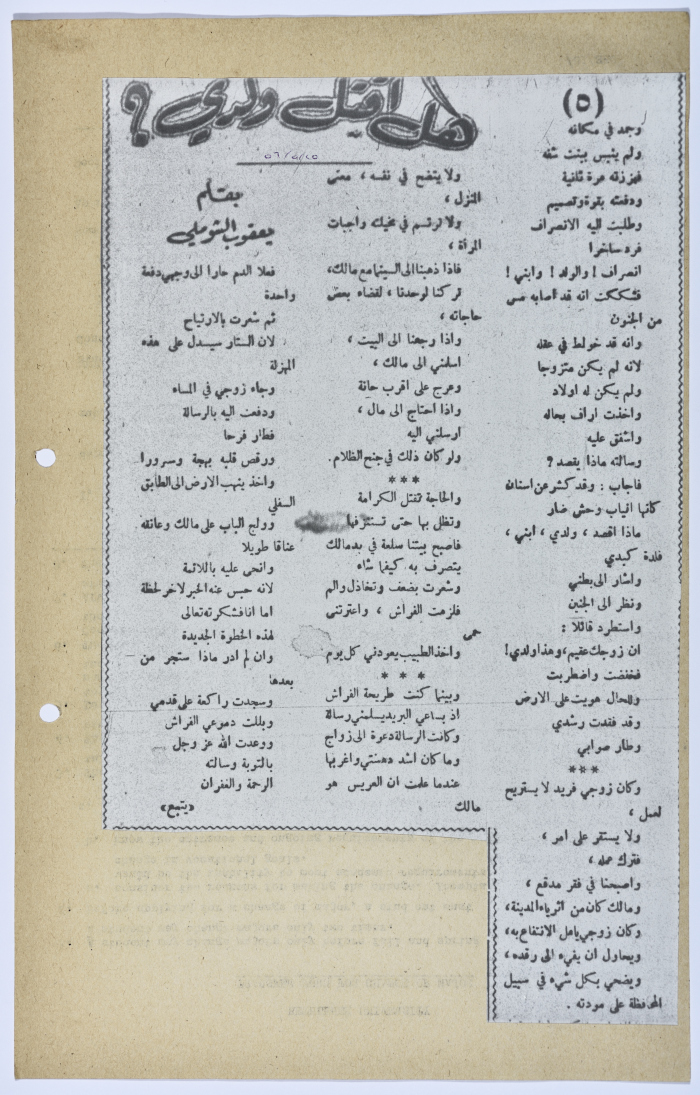 هل اقتل ولدي ؟
٥٦/٥/٢٥
بقلم
يعقوب الشوملي
(٥)
وجمد في مكانه
ولم ينبس ببنت شفة
فهززته مرة ثانية
ودفعته بقوة وتصميم
وطلبت اليه الانصراف
فرد ساخرا
انصراف ! والولد ! وابني !
فشككت انه قد أصابه مس
من الجنون
وانه قد خولط في عقله
لانه لم يكن متزوجا
ولم يكن له اولاد
واخذت اراف بحاله
واشفق عليه
وسالته ماذا يقصد ؟
فاجاب : وقد كشر عن اسنان
كانها انياب وحش ضار
ماذا اقصد ، ولدي ، ابني ،
فلذة كبدي
واشار الى بطني
ونظر الى الجنين
واستطرد قائلا :
ان زوجك عقيم، وهذا ولدي !
فخفضت واضطربت
وللحال هويت على الارض
وقد فقدت رشدي
وطار صوابي
***
وكان زوجي فريد لا يستريح
لعمل ،
ولا يستقر على امر ،
فترك عمله ،
واصبحنا في فقر مدقع ،
ومالك كان من اثرياء المدينة،
وكان زوجي يامل الانتفاع به،
ويحاول ان يفيء الى رفده ،
ويضحي بكل شيء في سبيل
المحافظة على مودته .
ولا يتضح في نفسه ، معنى
التزل ،
ولا ترتسم في مخيلته واجبات
المرأة ،
فاذا ذهبنا الى السينما مع مالك،
تركنا لوحدنا ، لقضاء بعض
حاجاته ،
واذا رجعنا الى البيت ،
اسلمني الى مالك ،
وعرج على اقرب حانة
واذا احتاج الى مال ،
ارسلني اليه
ولو كان ذلك في جنح الظلام.
***
والحاجة تقتل الكرامة
وتظل بها حتى تستنزفها
فاصبح بيتنا سلعة في يد مالك
يتصرف به كيفما شاء
وشعرت بضعف وتخاذل والم
فلزمت الفراش ، واعترتني
حمى
واخذ الطبيب يعودني كل يوم
* * *
وبينما كنت طريحة الفراش
اذ بساعي البريد يسلمني رسالة
وكانت الرسالة دعوة الى زواج
وما كان اشد دهشتي واغربها
عندما علمت ان العريس هو
مالك
فعلا الدم حارا الى وجهي دفعة
واحدة
ثم شعرت بالارتياح
لان الستار سيسدل على هذه
المهزلة
وجاء زوجي في المساء
ودفعت اليه بالرسالة
فطار فرحا
ورقص قلبه بهجة وسرورا
واخذ ينهب الارض الى الطابق
السفلي
وولج الباب على مالك وعانقه
عناقا طويلا
وانحى عليه باللائمة
لانه حبس عنه الخبر لاخر لحظة
اما انا فشكرته تعالى
لهذه الخطوة الجديدة
وان لم ادر ماذا ستجر من
بعدها
وسجدت راكعة على قدمي
وبللت دموعي الفراش
ووعدت الله عز وجل
بالتوبة وسالته
الرحمة والغفران
«يتبع»